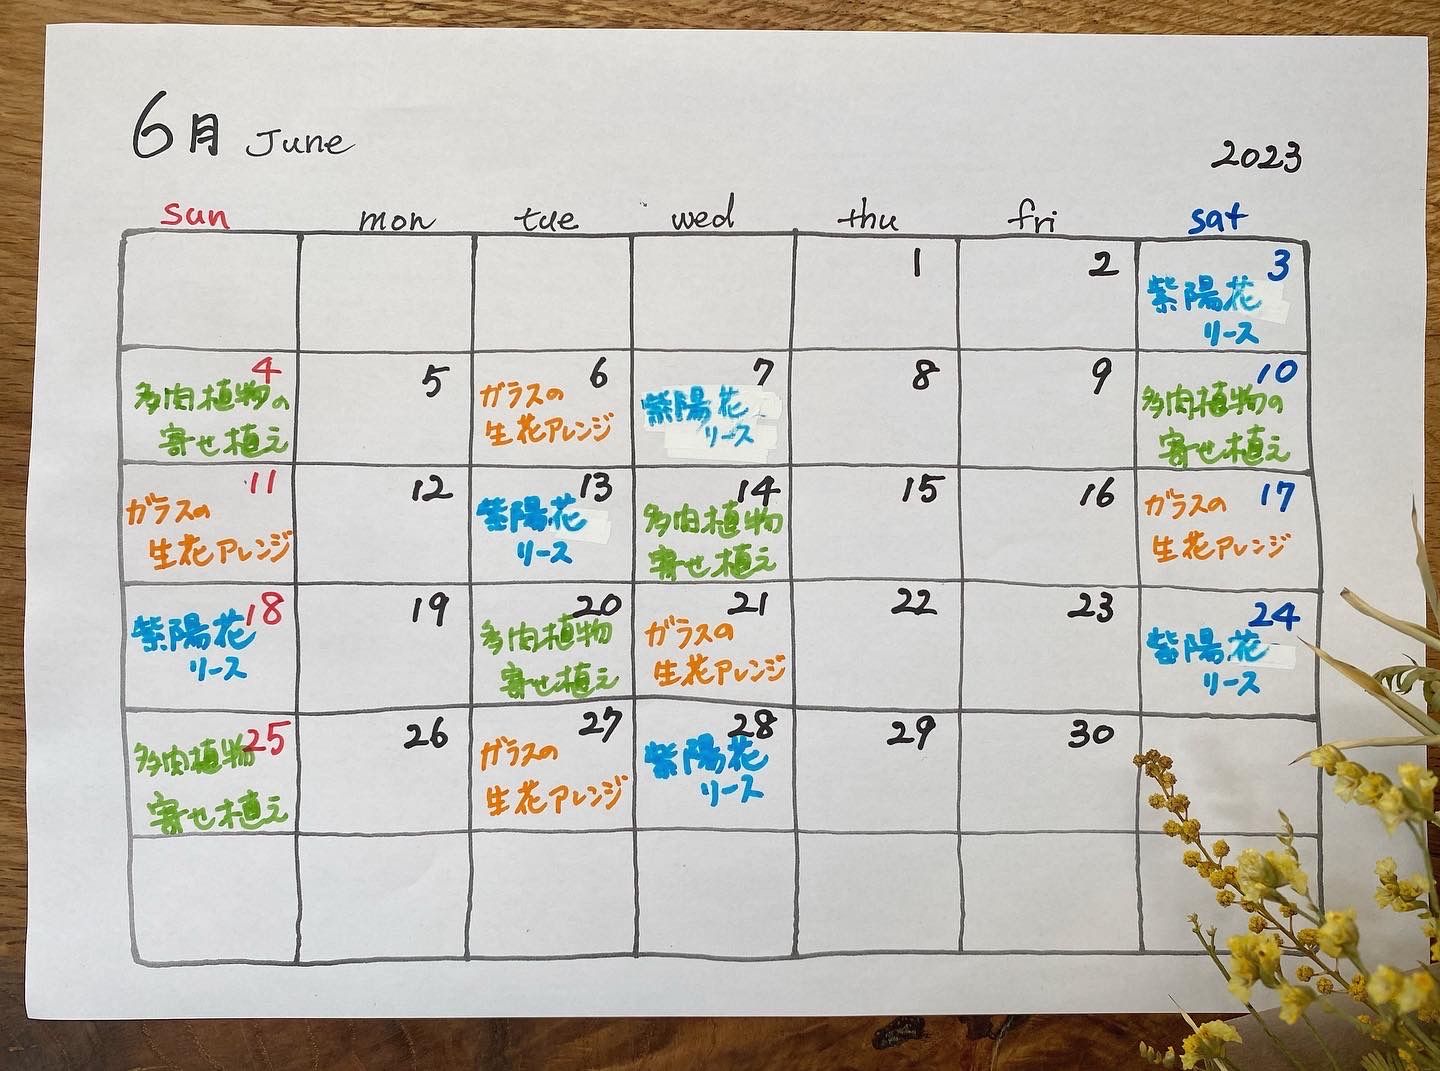 6月 June
2023
sun mon tue wed thu fri sat
1 2 3
紫陽花
リース
4 5 6 7 8 9 10
多肉植物の ガラスの 紫陽花 多肉植物の
寄せ植え 生花アレンジ リース 寄せ植え
11 12 13 14 15 16 17
ガラスの 紫陽花 多肉植物 ガラスの
生花アレンジ リース 寄せ植え 生花アレンジ
18 19 20 21 22 23 24
紫陽花 多肉植物 ガラスの 紫陽花
リース 寄せ植え 生花アレンジ リース
25 26 27 28 29 30
多肉植物 ガラスの 紫陽花
寄せ植え 生花アレンジ リース